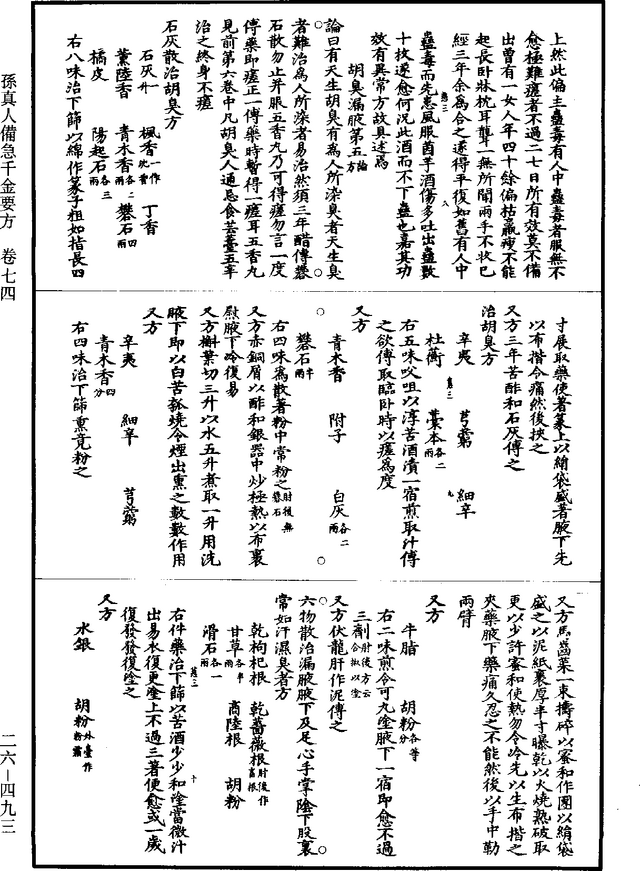 上然此偏主蠱毒有人中蠱毒者服無不
愈極難瘥者不過二七日所有效莫不備
出曾有一女人年四十餘偏枯羸瘦不能
起長臥牀枕耳聾一無所聞兩手不收已
經三年余為合之遂得平復如舊有人中
蠱毒而先患風服茵芋酒傷多吐出蠱數
十枚遂愈何況此酒而不下蠱也嘉其功
效有異常方故具述焉
胡臭漏腋第五 論 方
論曰有天生胡臭有為人所染臭者天生臭
者難治為人所染者易治然須三年醋傅礬
石散勿止并服五香丸乃可得瘥勿言一度
傅藥即瘥正一傅藥時暫得一瘥耳五香丸
見前第六卷中凡胡臭人通忌食芸薹五辛
治之終身不瘥
石灰散治胡臭方
石灰一升 楓香一作沈香 丁香
薰陸香 青木香各二兩 礬石四兩
橘皮 陽起石各三兩
右八味治下篩以綿作篆子粗如指長四
寸展取藥使著篆上以絹袋盛著腋下先
以布揩令痛然後挾之
又方三年苦酢和石灰傅之
治胡臭方
辛夷 芎藭 細辛
杜蘅 藁本各二兩
右五味㕮咀以淳苦酒漬一宿煎取汁傅
之欲傅取臨臥時以瘥為度
又方
青木香 附子 白灰各二兩
礬石半兩
右四味為散著粉中常粉之肘後無礬石
又方赤銅屑以酢和銀器中炒極熱以布裹
熨腋下冷復易
又方槲葉切三升以水五升煮取一升用洗
腋下即以白苦瓠燒令煙出熏之數數作用
又方
辛夷 細辛 芎藭
青木香四分
右四味治下篩熏竟粉之
又方馬齒菜一束擣碎以蜜和作團以絹袋
盛之以泥紙裹厚半寸曝乾以火燒熟破取
更以少許蜜和使熱勿令冷先以生布揩之
夾藥腋下藥痛久忍之不能然後以手中勒
兩臂
又方
牛脂 胡粉各等分
右二味煎令可丸塗腋下一宿即愈不過
三劑肘後方云合椒以塗
又方伏龍肝作泥傅之
六物散治漏腋腋下及足心手掌陰下股裏
常如汗濕臭者方
乾枸杞根 乾薔薇根肘後作畜根
甘草各半兩 商陸根 胡粉
滑石各一兩
右件藥治下篩以苦酒少少和塗當微汁
出易水復更塗上不過三著便愈或一歲
復發發復塗之
又方
水銀 胡粉外臺作粉霜
孫真人備急千金要方 卷七四
二六－四九三